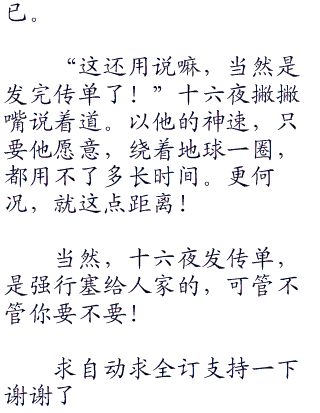 已。
“这还用说嘛，当然是
发完传单了！”十六夜撇撇
嘴说着道。以他的神速，只
要他愿意，绕着地球一圈，
都用不了多长时间。更何
况，就这点距离！
当然，十六夜发传单，
是强行塞给人家的，可管不
管你要不要！
求自动求全订支持一下
谢谢了